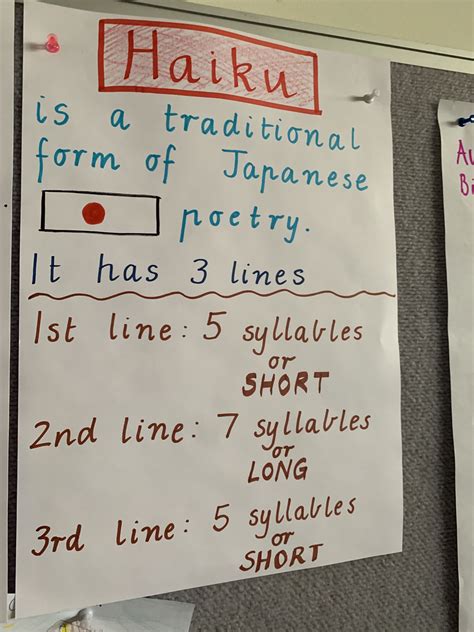 Haiku
is a traditional
form of Japanese
poetry.
It has 3 lines
1st line: 5 syllables
or
SHORT
2nd line: 7 syllables
or
LONG
3rd line: 5 syllables
or
SHORT